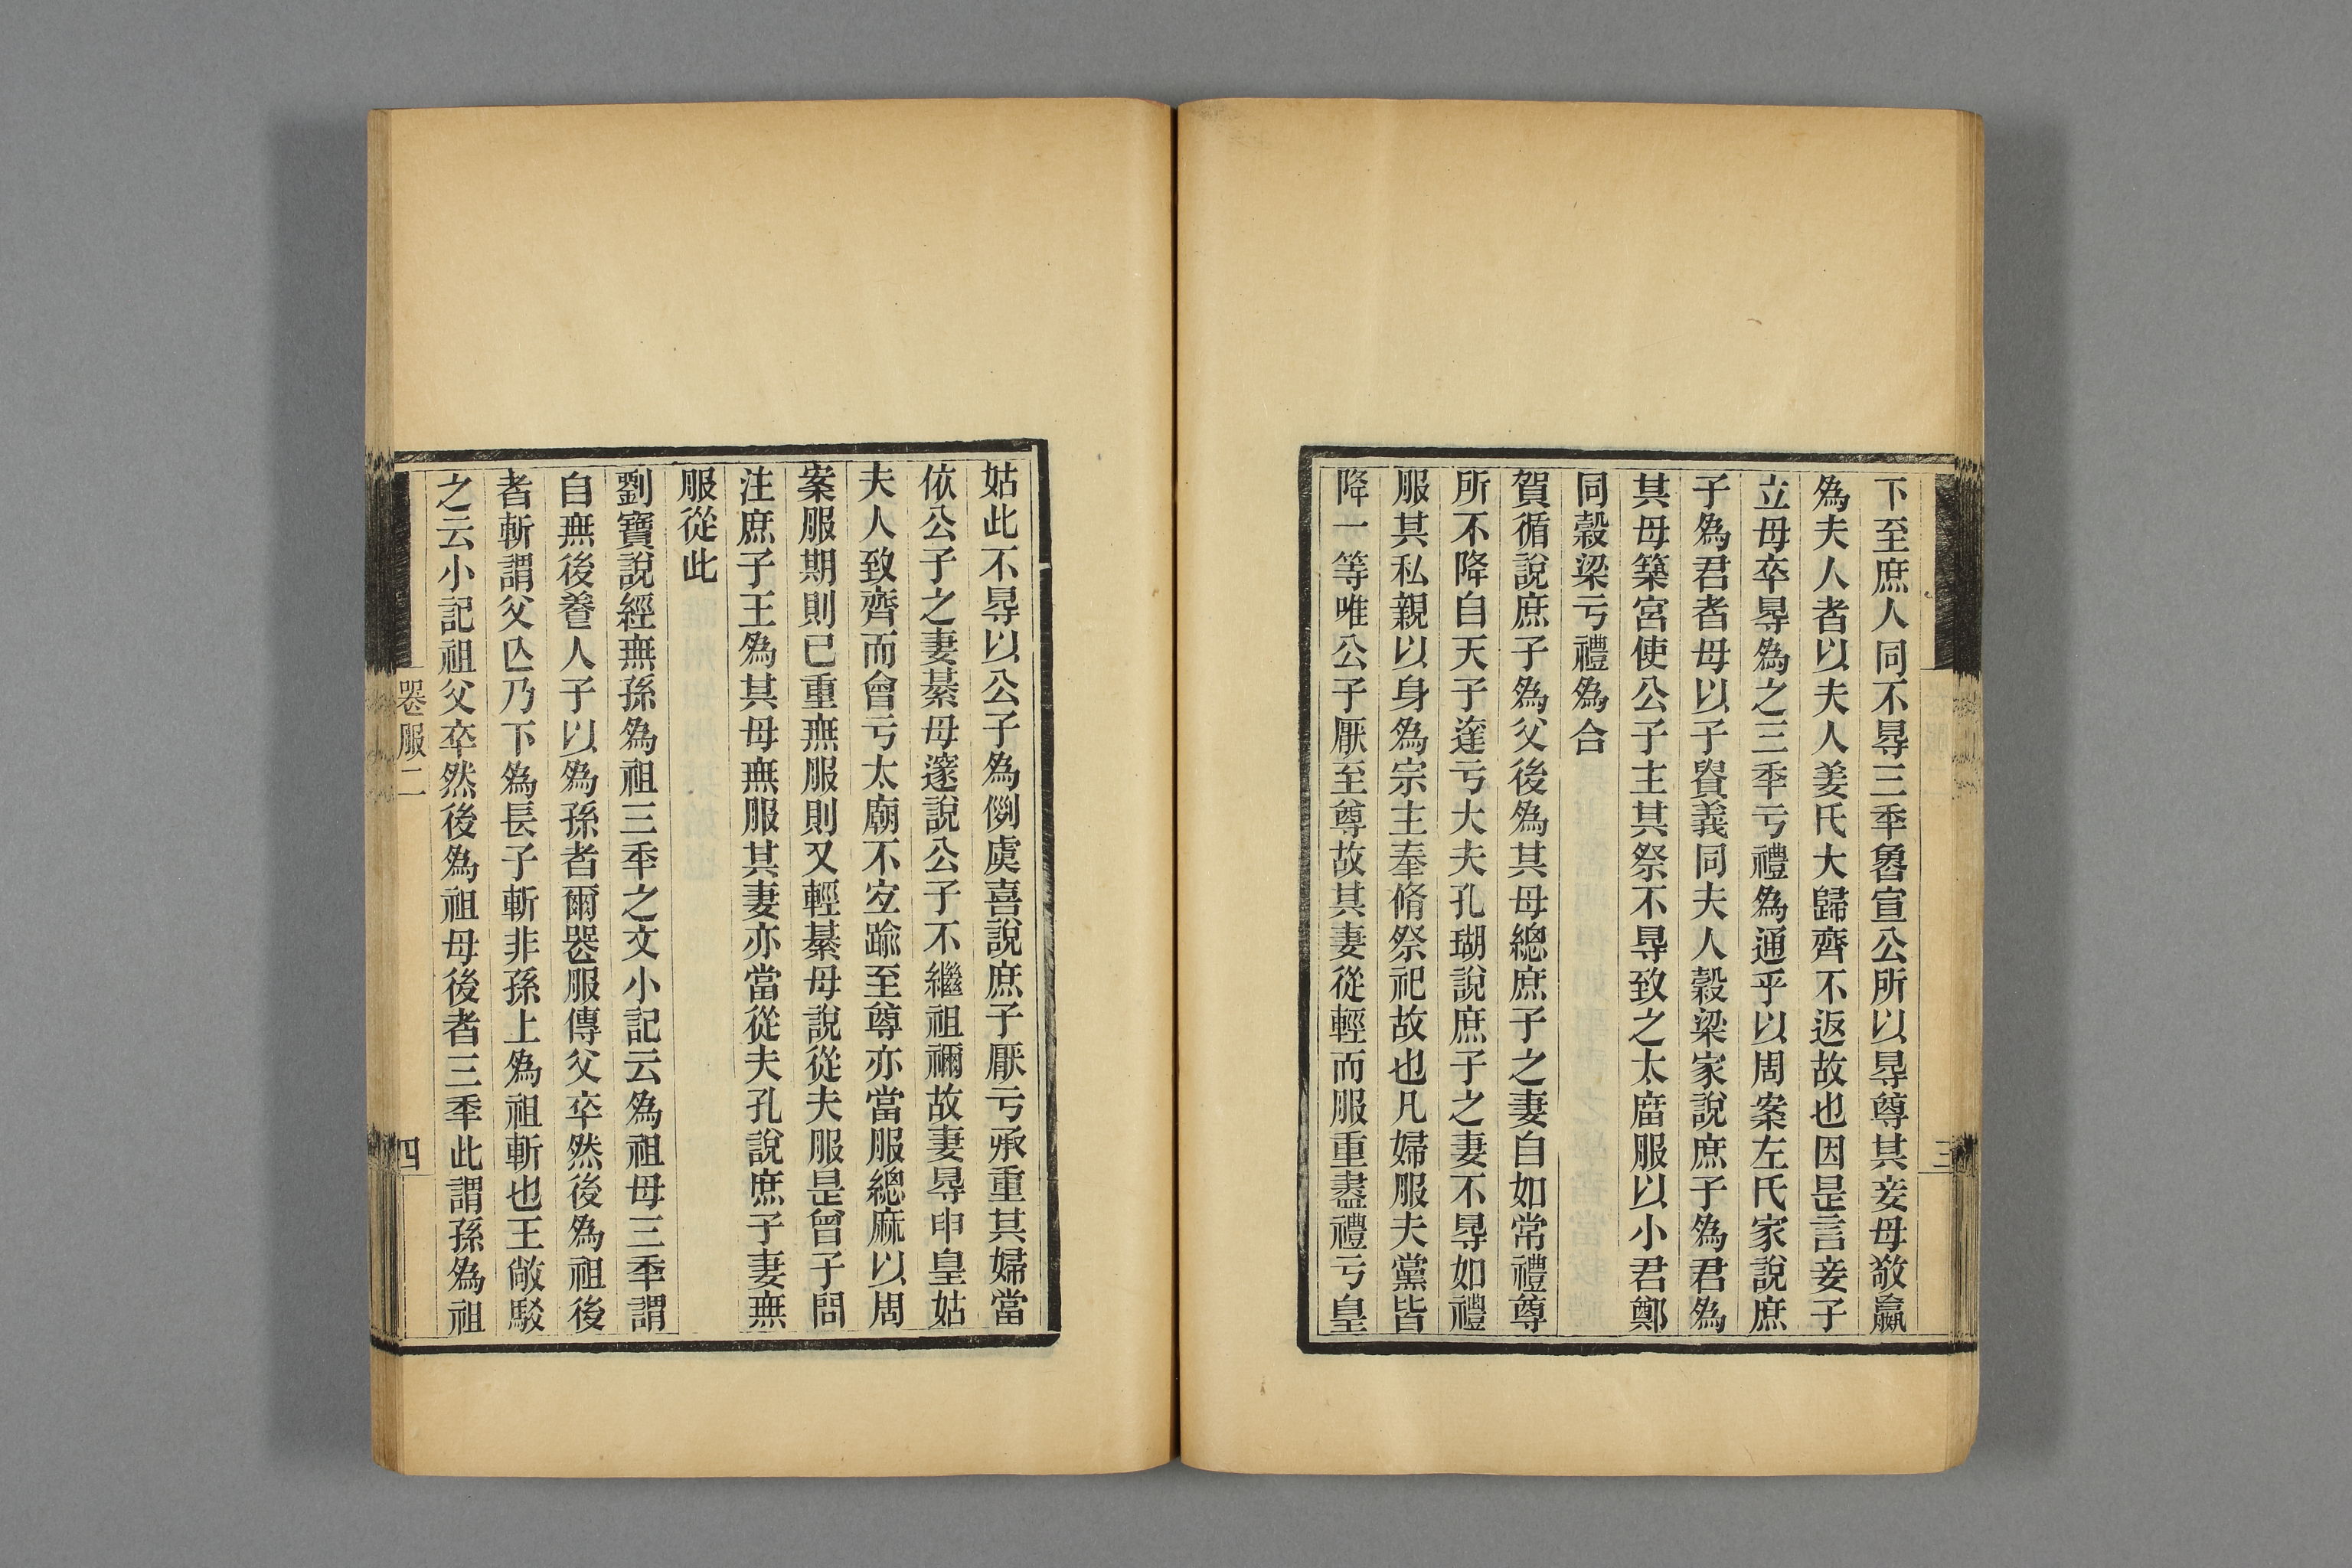 下至庶人同不㝵三秊魯宣公所以㝵尊其妾母敬嬴
爲夫人者以夫人姜氏大歸齊不返故也因是言妾子
立母卒㝵爲之三秊亏禮爲通乎以周案左氏家說庶
子爲君者母以子貴義同夫人穀梁家說庶子爲君爲
其母築宮使公子主其祭不㝵致之太庿服以小君鄭
同穀梁亏禮爲合
賀循說庶子爲父後爲其母緦庶子之妻自如常禮尊
所不降自天子達亏大夫孔瑚說庶子之妻不㝵如禮
服其私親以身爲宗主奉脩祭祀故也凡婦服夫黨皆
降一等唯公子厭至尊故其妻從輕而服重盡禮亏皇
三
姑此不㝵以公子爲例虞喜說庶子厭亏承重其婦當
依公子之妻綦毋邃說公子不繼祖禰故妻㝵申皇姑
夫人致齊而會亏太廟不宜踰至尊亦當服緦麻以周
案服期則已重無服則又輕綦毋說從夫服是曾子問
注庶子王爲其母無服其妻亦當從夫孔說庶子妻無
服從此
劉寶說經無孫爲祖三秊之文小記云爲祖母三秊謂
自無後養人子以爲孫者爾喪服傳父卒然後爲祖後
者斬謂父亾乃下爲長子斬非孫上爲祖斬也王敞駁
之云小記祖父卒然後爲祖母後者三秊此謂孫爲祖
喪服二
四